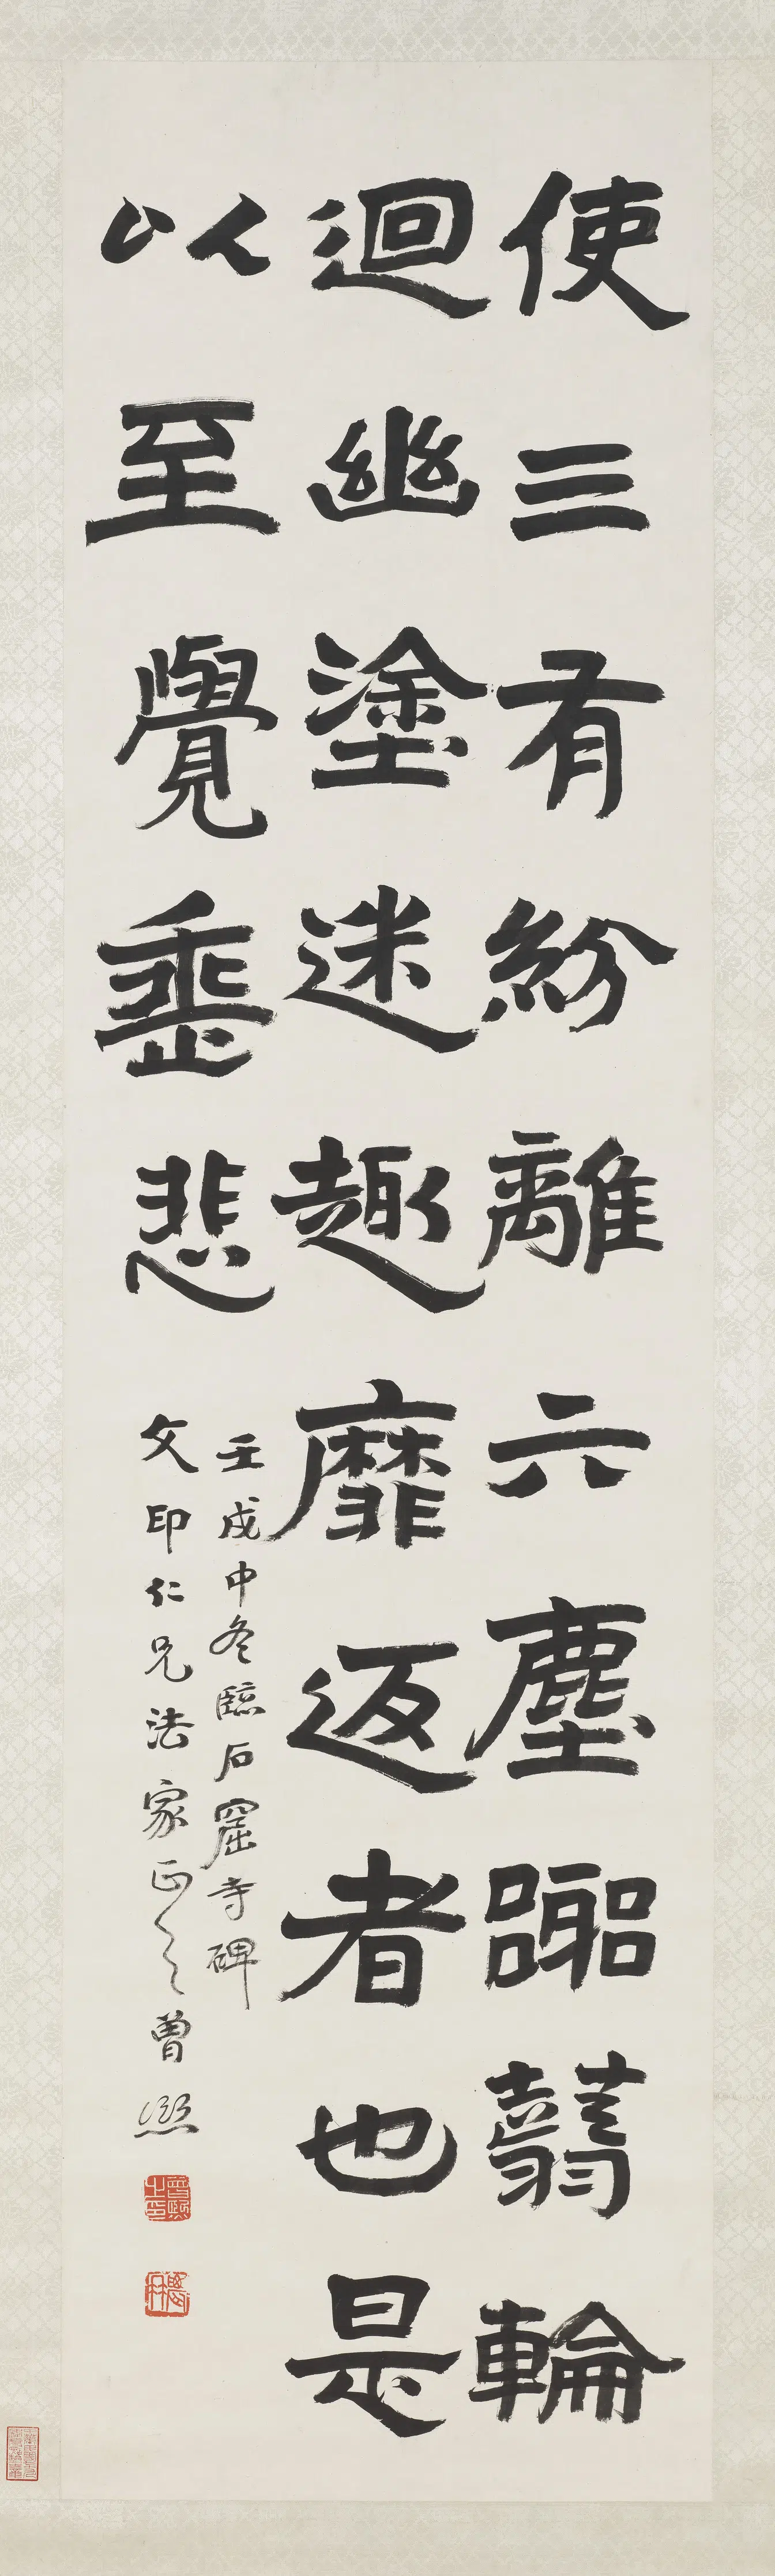 使三有紛離六塵翳輪
迴幽塗迷趣靡返者也是
以至覺垂悲
壬戌中冬臨石窟寺碑
文印仁兄法家正之曾熙
曾熙之印
農髯